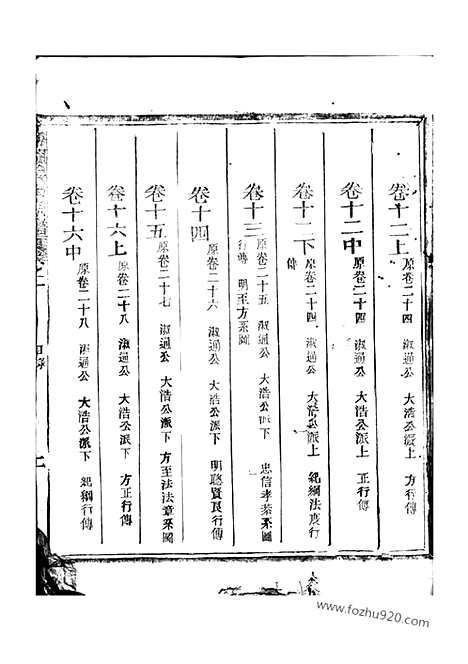 卷十二上 原卷二十四 淑通公 大浩公派上 方行傳
卷十二中 原卷二十四 淑通公 大浩公派上 正行傳
卷十二下 原卷二十四 淑通公 大浩公派上 紀綱法度行
傳
卷十三 原卷二十五 淑通公 大浩公派下 忠信孝系圖
行傳 明至方系圖
卷十四 原卷二十六 淑通公 大浩公派下 明聰賢良行傳
卷十五 原卷二十七 淑通公 大浩公派下 方至法法章系圖
卷十六上 原卷二十八 淑通公 大浩公派下 方正行傳
卷十六中 原卷二十八 淑通公 大浩公派下 紀綱行傳
www.fozhu920.com